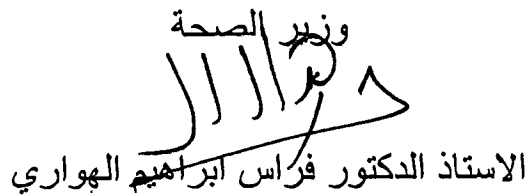 وزير الصحة
الاستاذ الدكتور فراس ابراهيم الهواري